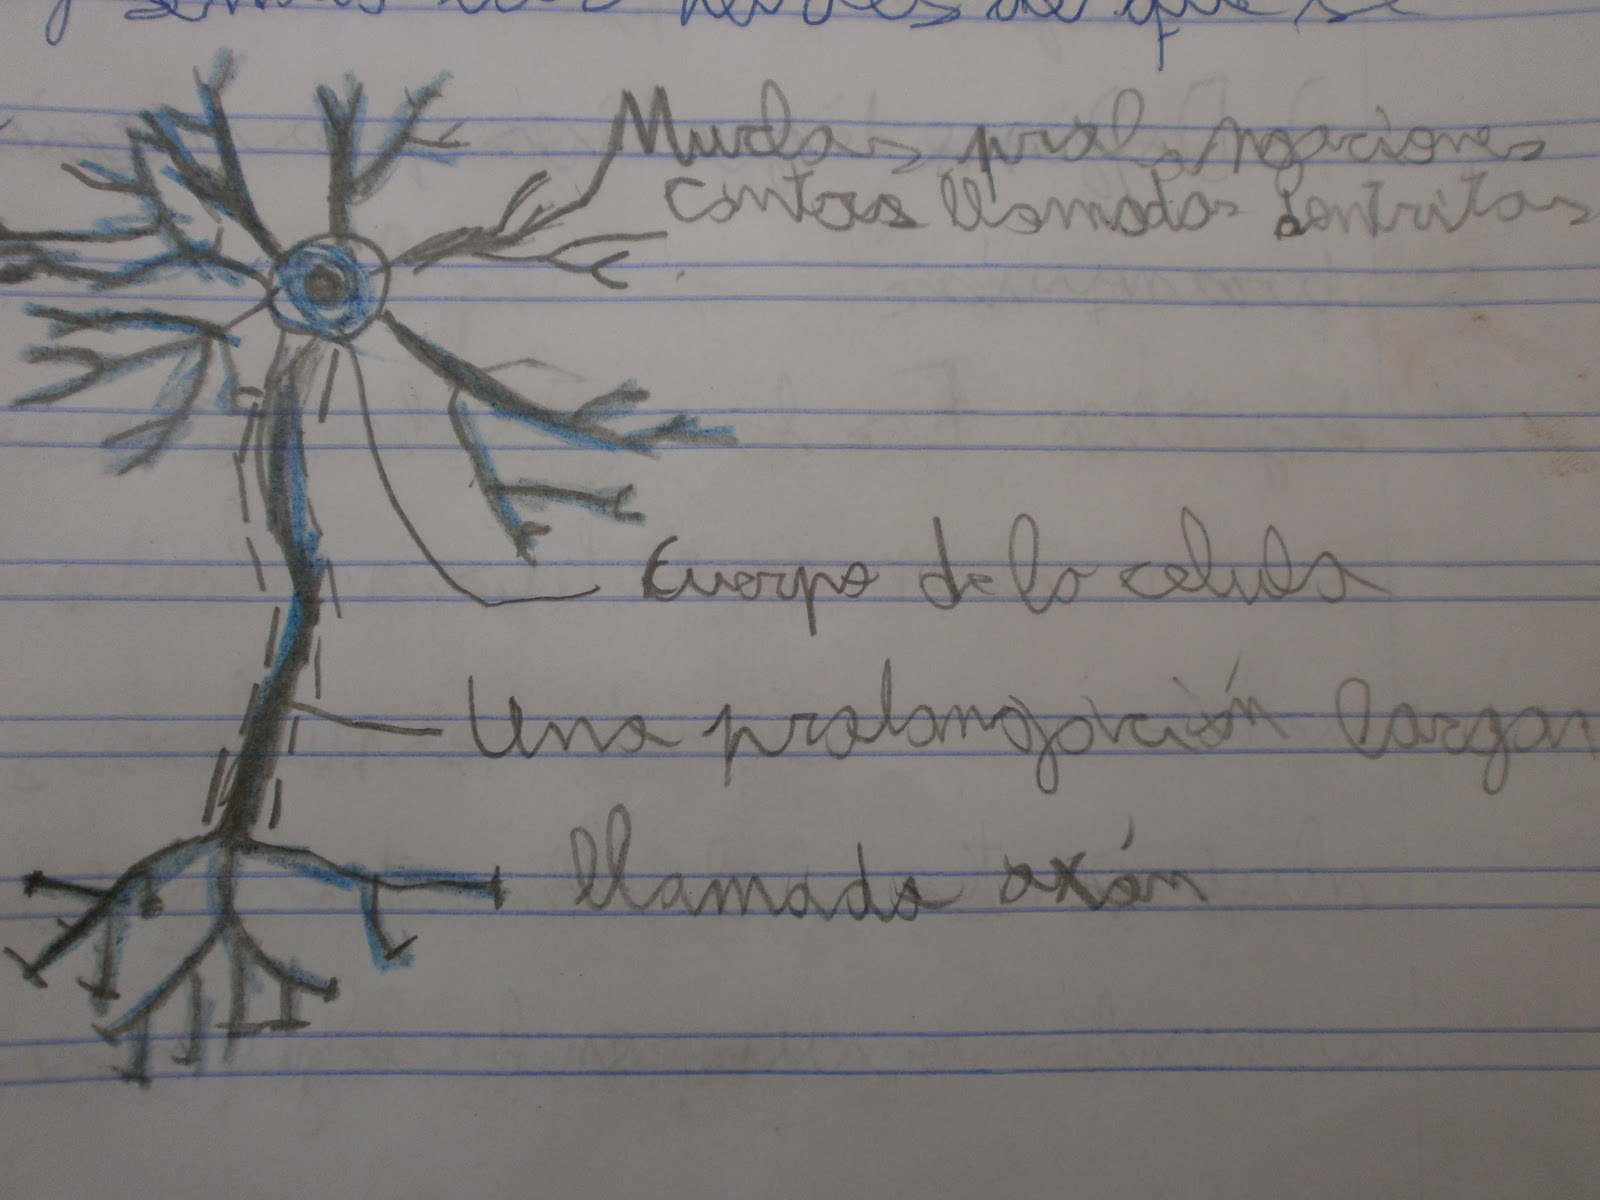 de que se
Muchas prolongaciones
cortas llamadas dentritas
Cuerpo de la celula
Una prolongación larga
llamada axón